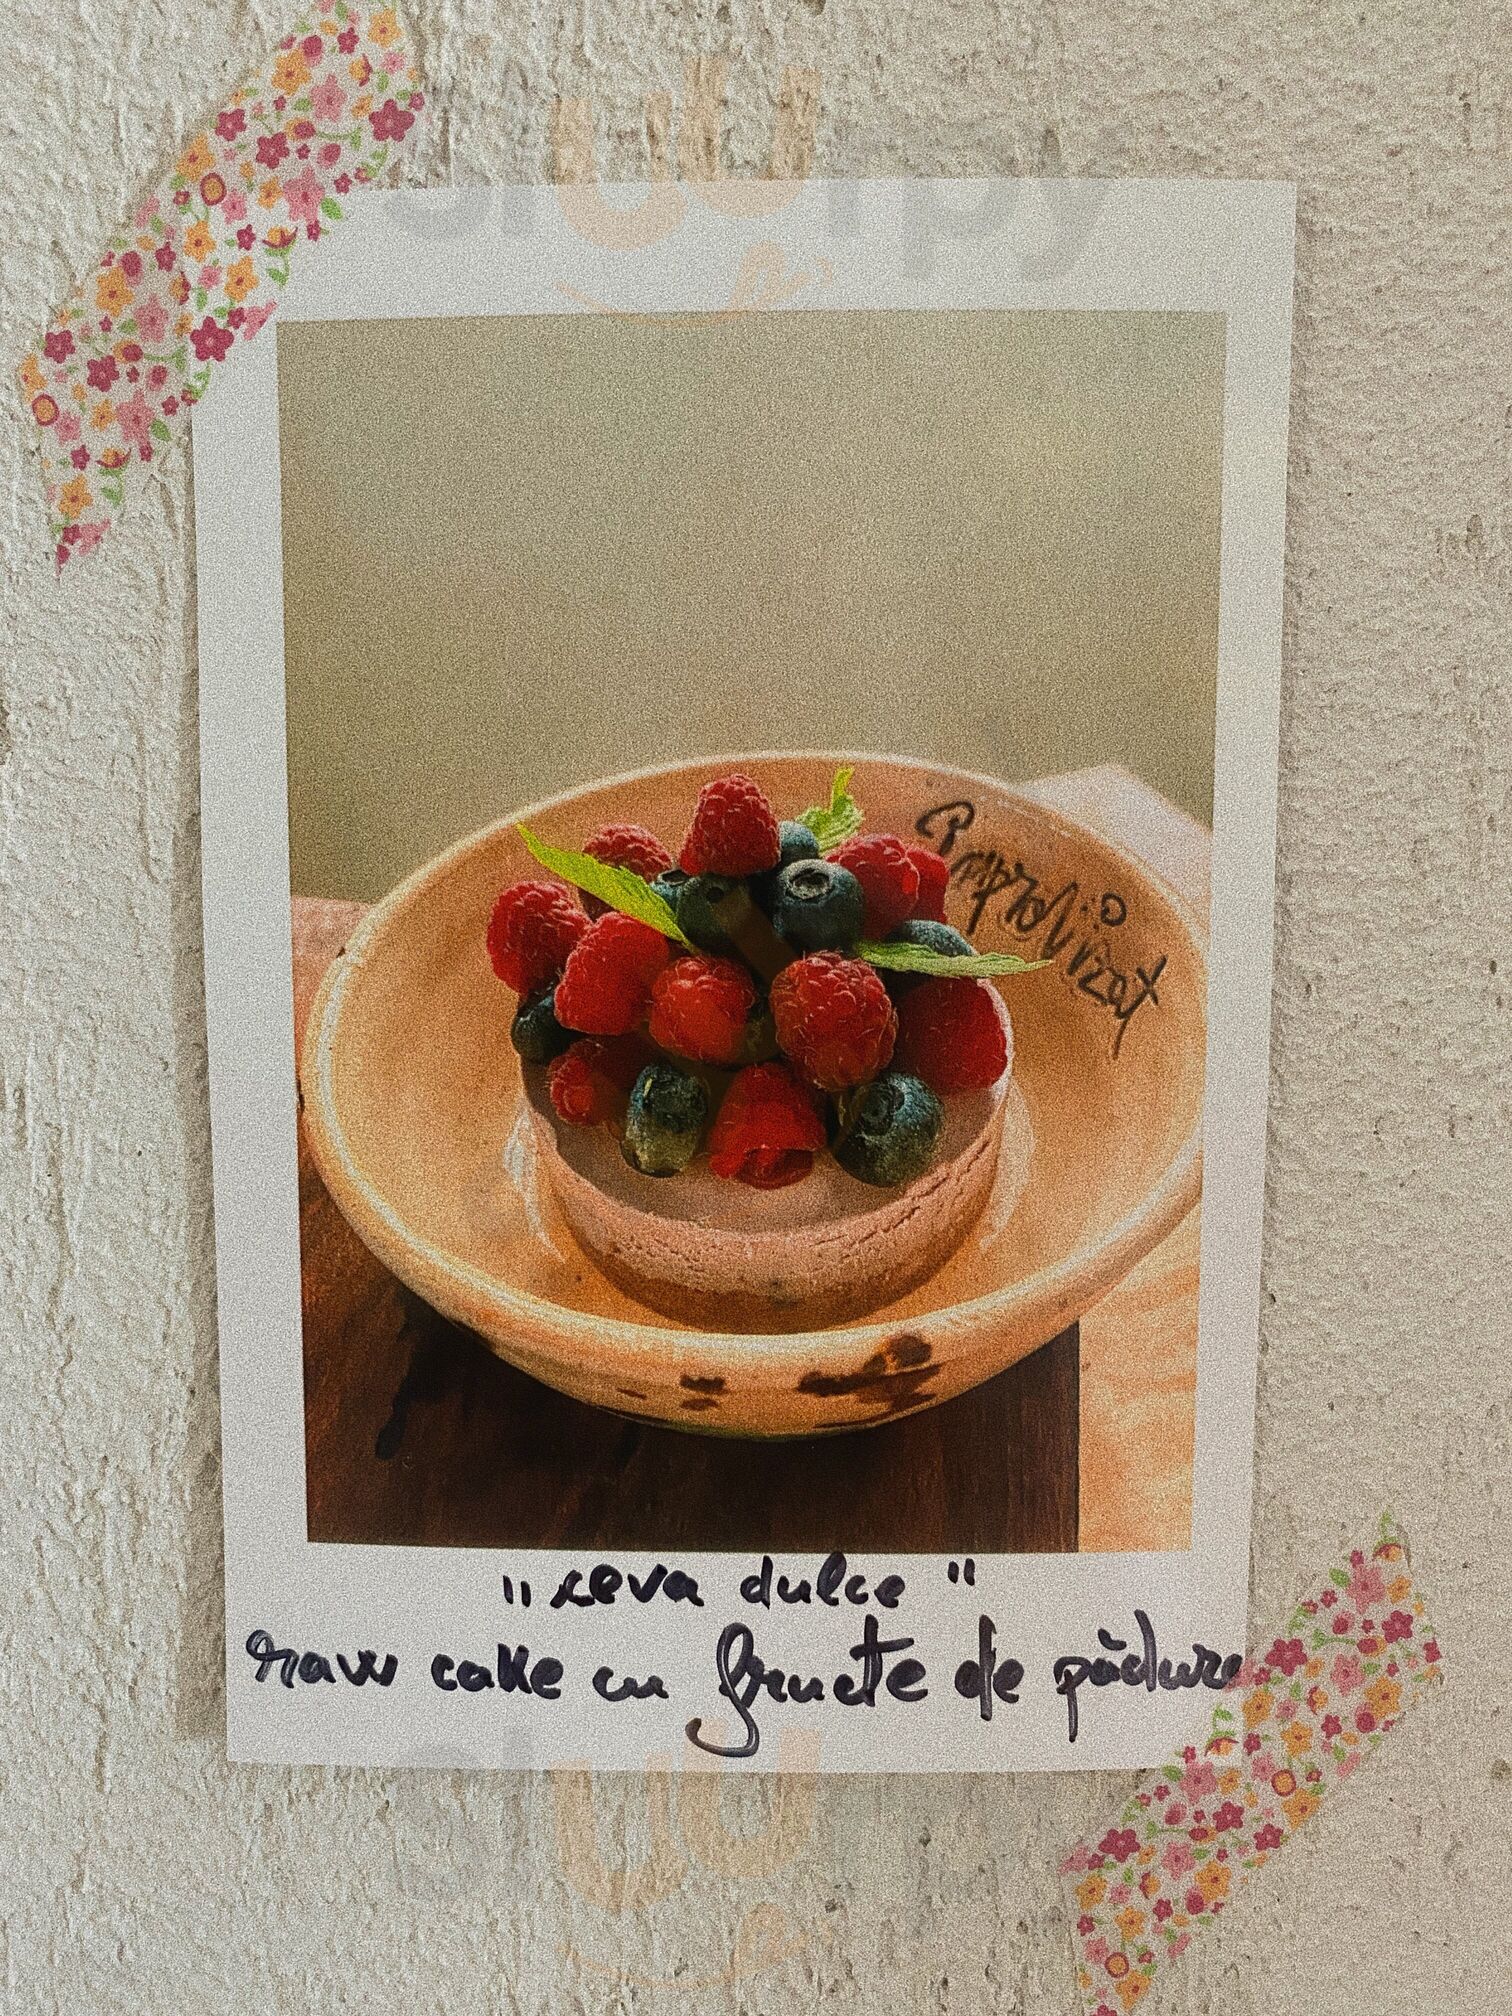 "ceva dulce"
raw cake cu fructe de pădure